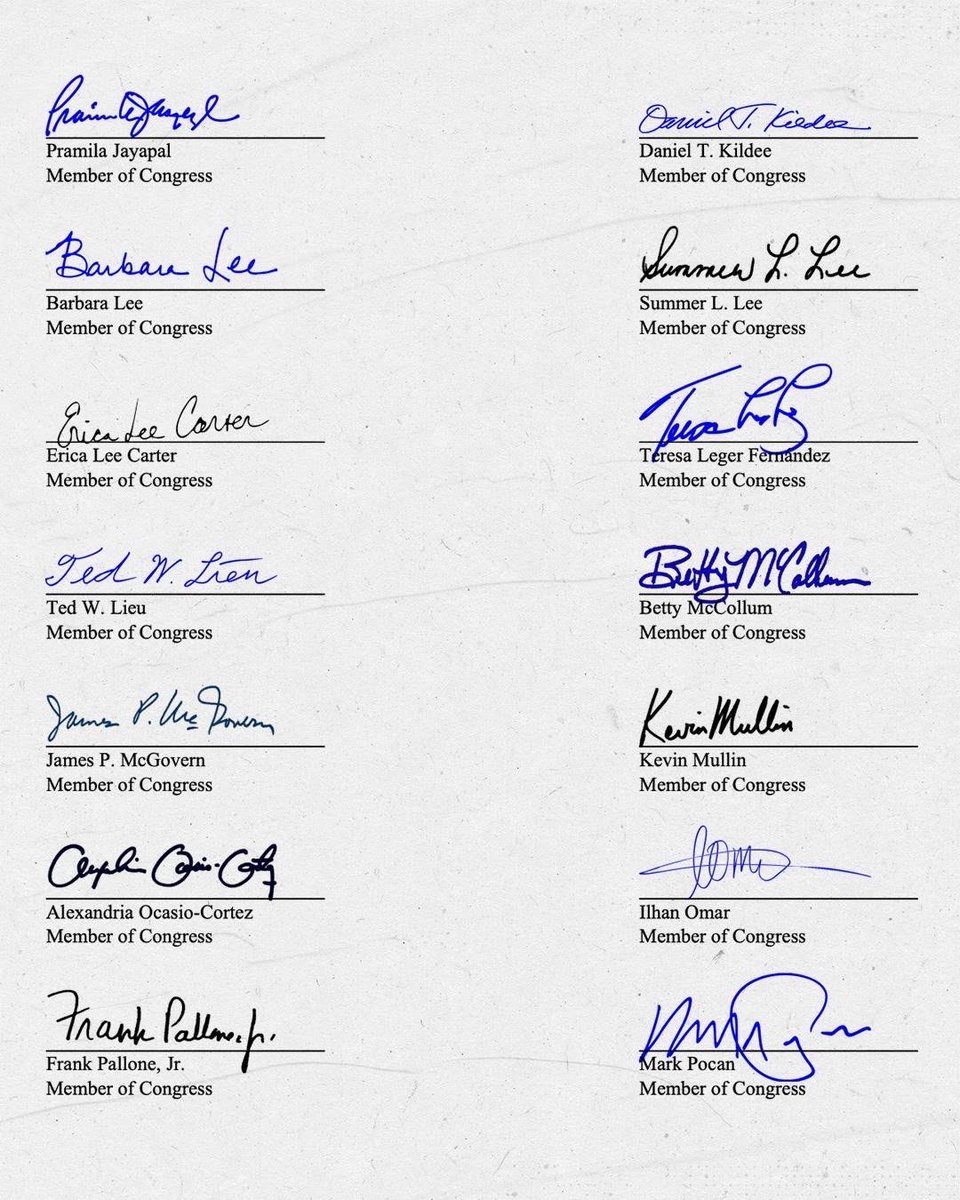 Pramila Jayapal
Pramila Jayapal
Member of Congress
Barbara Lee
Barbara Lee
Member of Congress
Erica Lee Carter
Erica Lee Carter
Member of Congress
Ted W. Lieu
Ted W. Lieu
Member of Congress
James P. McGovern
James P. McGovern
Member of Congress
Alexandria Ocasio-Cortez
Alexandria Ocasio-Cortez
Member of Congress
Frank Pallone, Jr.
Frank Pallone, Jr.
Member of Congress
Daniel T. Kildee
Daniel T. Kildee
Member of Congress
Summer L. Lee
Summer L. Lee
Member of Congress
Teresa Leger Fernández
Member of Congress
Betty McCollum
Betty McCollum
Member of Congress
Kevin Mullin
Kevin Mullin
Member of Congress
Ilhan Omar
Member of Congress
Mark Pocan
Member of Congress